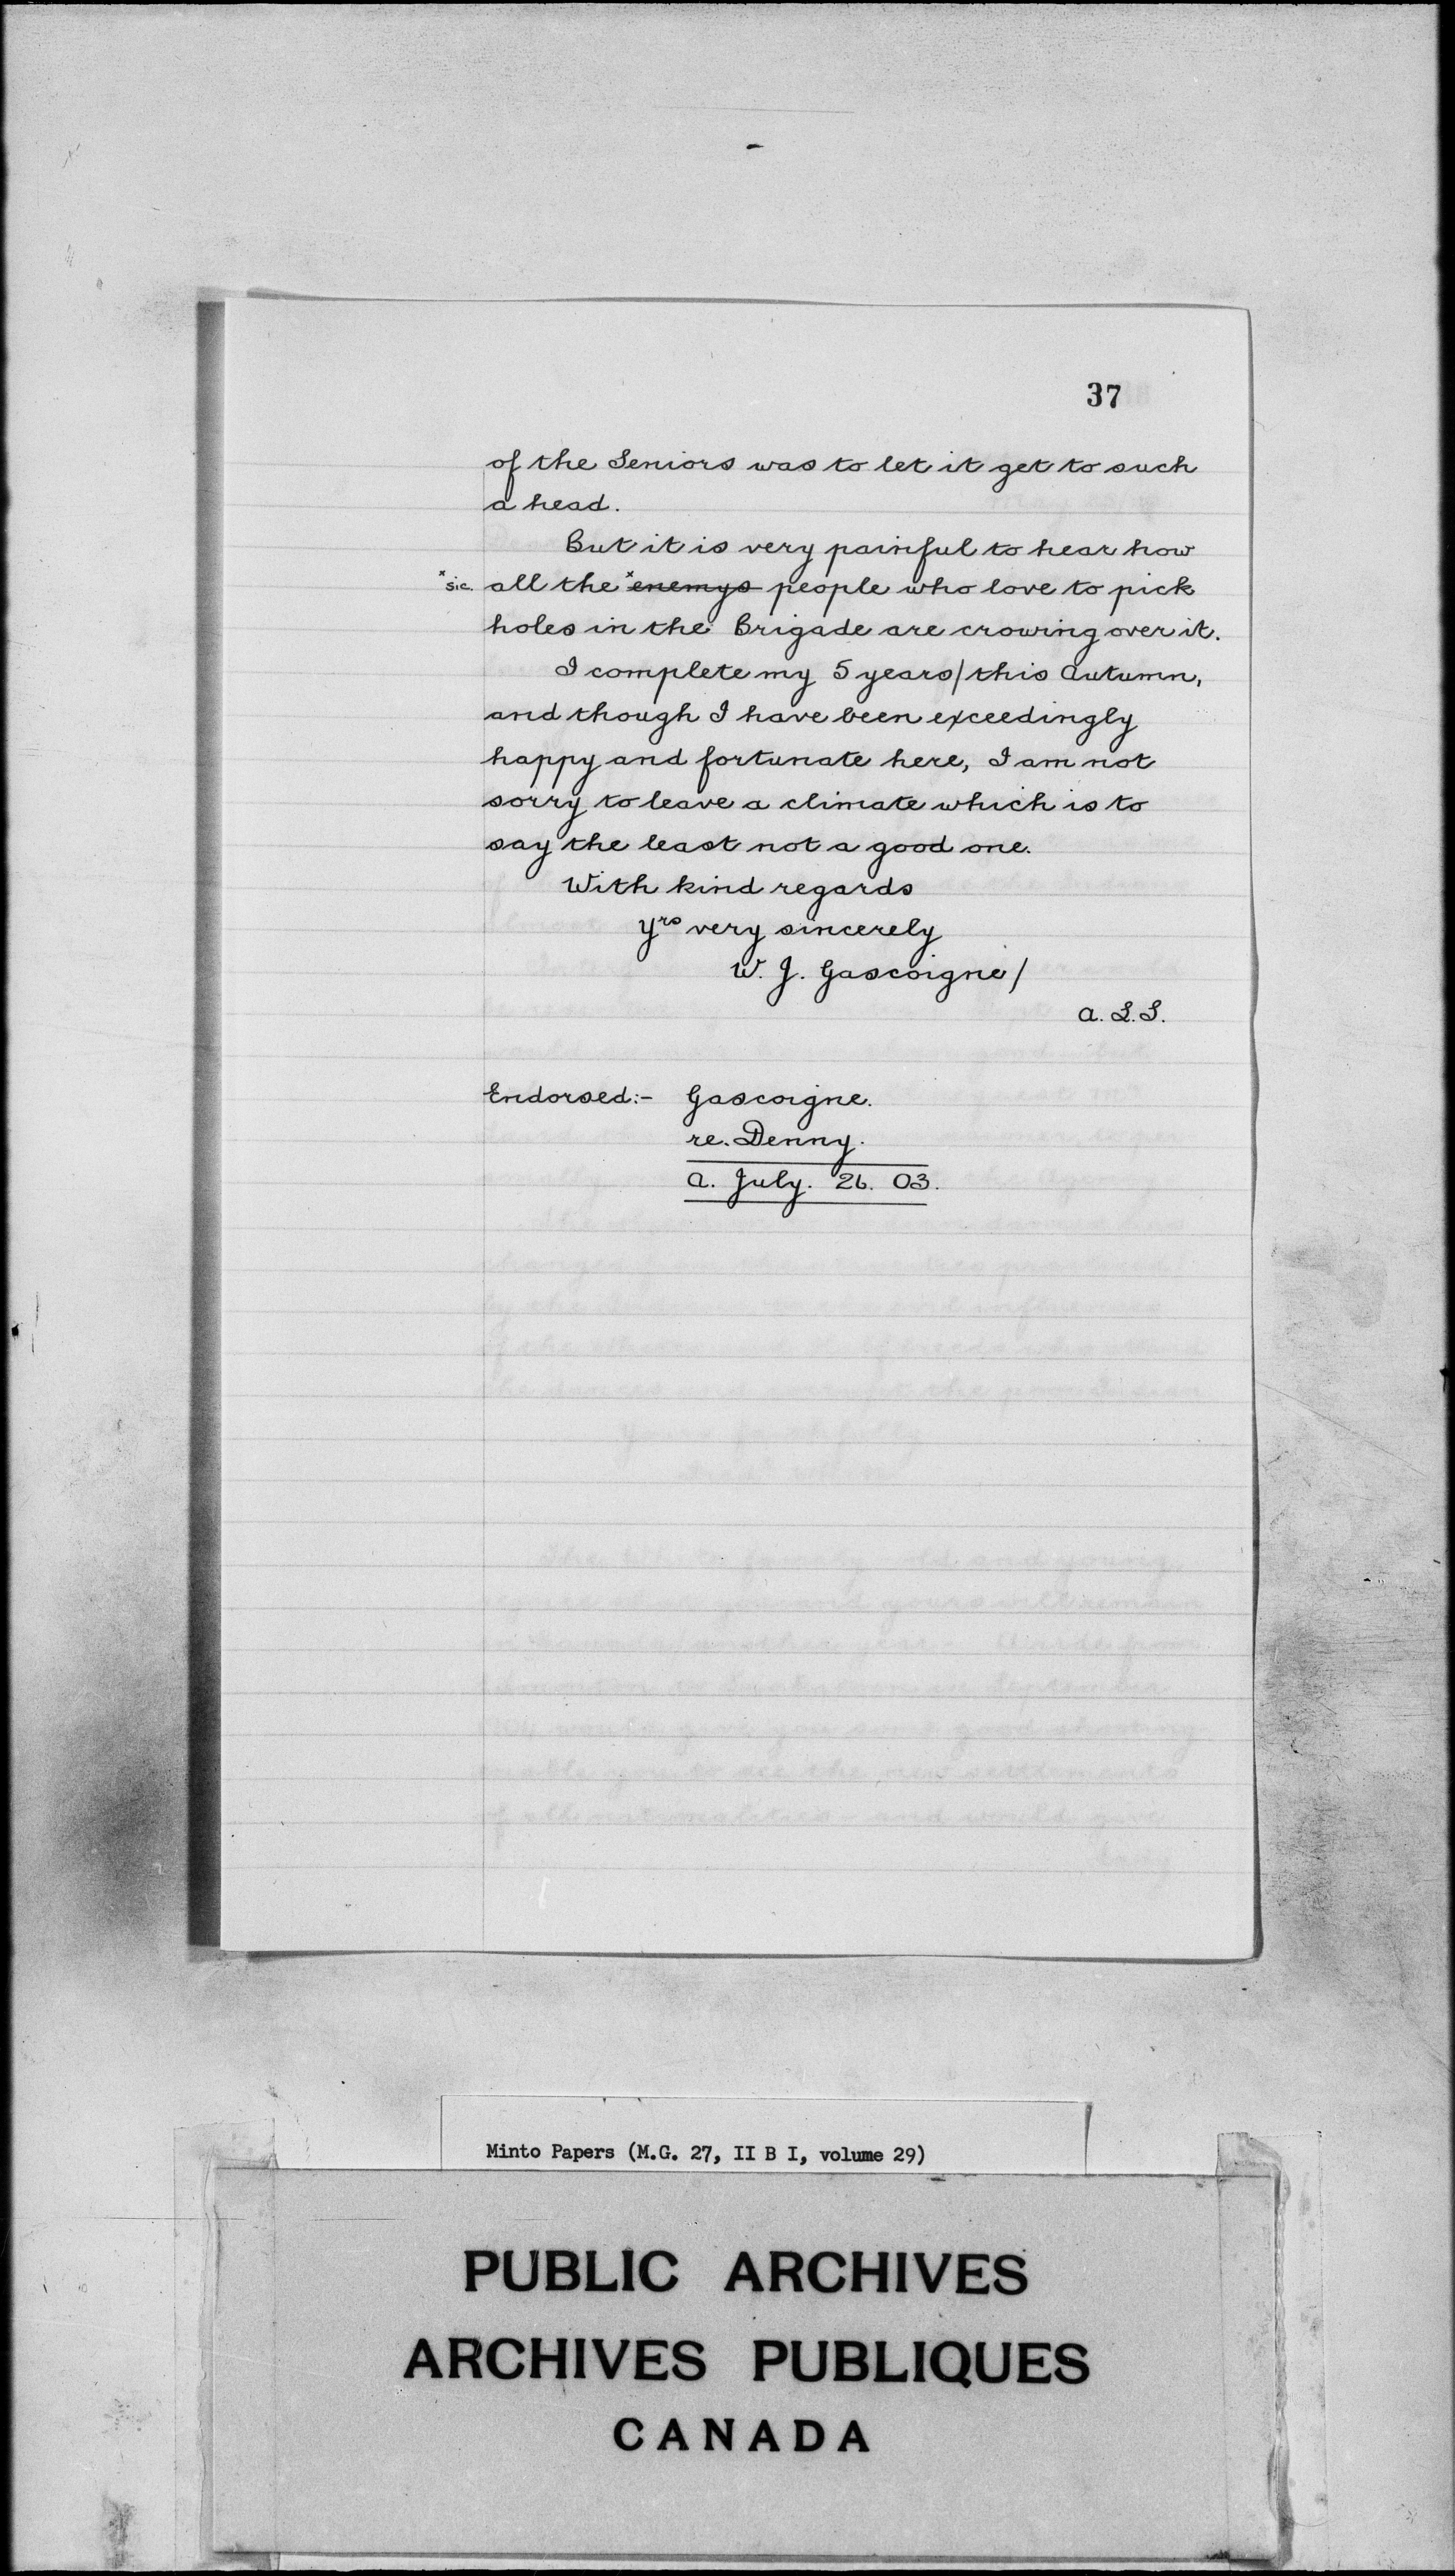 37
of the Seniors was to let it get to such
a head.
But it is very painful to hear how
x sic. all the x enemys people who love to pick
holes in the Brigade are crowing over it.
I complete my 5 years/ this Autumn,
and though I have been exceedingly
happy and fortunate here, I am not
sorry to leave a climate which is to
say the least not a good one.
With kind regards
Yrs very sincerely
W. J. Gascoigne/
A. L. S.
Endorsed:- Gascoigne.
re. Denny.
A. July. 26. 03.
Minto Papers (M.G. 27, II B I, volume 29)
PUBLIC ARCHIVES
ARCHIVES PUBLIQUES
CANADA